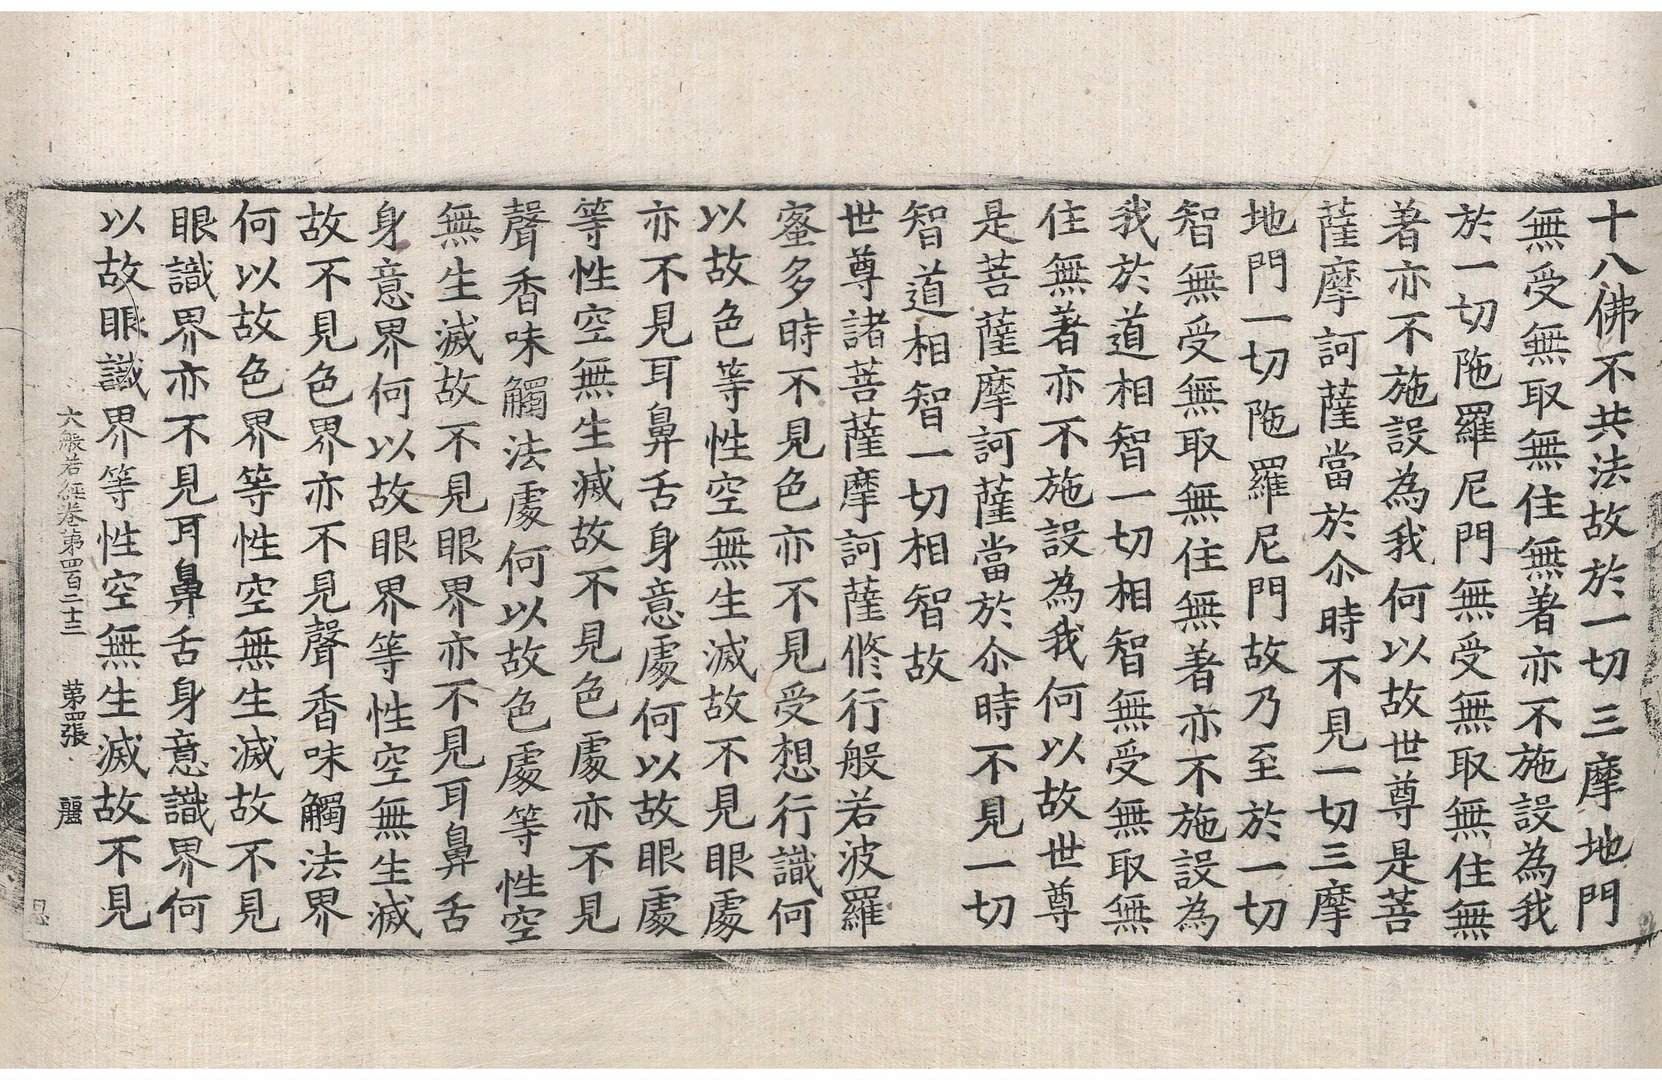 十八佛不共法故於一切三摩地門
無受無取無住無著亦不施設為我
於一切陁羅尼門無受無取無住無
著亦不施設為我何以故世尊是菩
薩摩訶薩當於尒時不見一切三摩
地門一切陁羅尼門故乃至於一切
智無受無取無住無著亦不施設為
我於道相智一切相智無受無取無
住無著亦不施設為我何以故世尊
是菩薩摩訶薩當於尒時不見一切
智道相智一切相智故
世尊諸菩薩摩訶薩修行般若波羅
蜜多時不見色亦不見受想行識何
以故色等性空無生滅故不見眼處
亦不見耳鼻舌身意處何以故眼處
等性空無生滅故不見色處亦不見
聲香味觸法處何以故色處等性空
無生滅故不見眼界亦不見耳鼻舌
身意界何以故眼界等性空無生滅
故不見色界亦不見聲香味觸法界
何以故色界等性空無生滅故不見
眼識界亦不見耳鼻舌身意識界何
以故眼識界等性空無生滅故不見
大般若經卷第四百二十三 第四張 麗